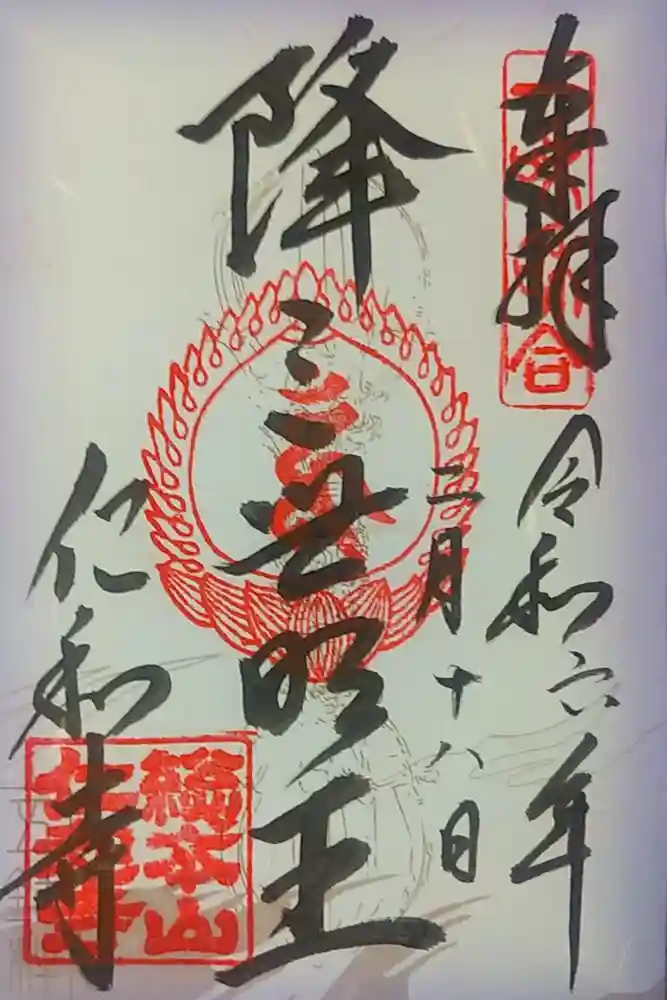 奉拝
令和六年
二月十八日
降三世明王
仁和寺
総本山
仁和寺